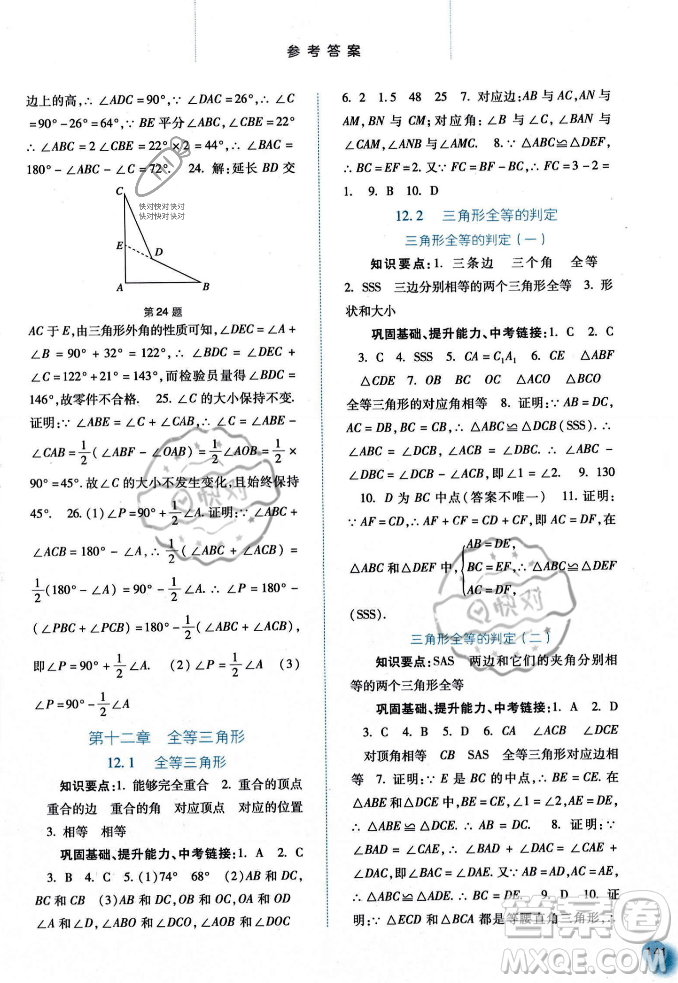 参考答案
边上的高,∴ ∠ADC = 90°,∵ ∠DAC = 26°,∴ ∠C
= 90° - 26° = 64°,∵ BE 平分∠ABC,∠CBE = 22°
∴ ∠ABC = 2 ∠CBE = 22° × 2 = 44°,∴ ∠BAC =
180° - ∠ABC - ∠C = 72°. 24. 解:延长 BD 交
快对快对快对
快对快对快对
C
E
D
A
B
第 24 题
AC 于 E,由三角形外角的性质可知,∠DEC = ∠A +
∠B = 90° + 32° = 122°,∴ ∠BDC = ∠DEC +
∠C = 122° + 21° = 143°,而检验员量得∠BDC =
146°,故零件不合格. 25. ∠C 的大小保持不变.
证明:∵ ∠ABE = ∠C + ∠CAB,∴ ∠C = ∠ABE -
∠CAB = 1/2 ∠ABF - 1/2(∠ABF - ∠OAB) = 1/2 ∠AOB = 1/2 ×
90° = 45°. 故∠C 的大小不发生变化,且始终保持
45°. 26. (1)∠P = 90° + 1/2 ∠A. 证明:∵ ∠ABC +
∠ACB = 180° - ∠A,∴ 1/2(∠ABC + ∠ACB) =
1/2(180° - ∠A) = 90° - 1/2 ∠A. ∴ ∠P = 180°
- (∠PBC + ∠PCB) = 180° - (90° - 1/2 ∠A),
即∠P = 90° + 1/2 ∠A (2)∠P = 1/2 ∠A (3)
∠P = 90° - 1/2 ∠A
第十二章 全等三角形
12.1 全等三角形
知识要点:1. 能够完全重合 2. 重合的顶点
重合的边 重合的角 对应顶点 对应的位置
3. 相等 相等
巩固基础、提升能力、中考链接:1. A 2. C
3. B 4. C 5. (1)74° 68° (2)AB 和 DC,
OB 和 OC (3)AB 和 DC,OB 和 OC,OA 和 OD
∠1 和 ∠2,∠ABO 和 ∠DCO,∠AOB 和 ∠DOC
6. 2 1.5 48 25 7. 对应边:AB 与 AC,AN 与
AM,BN 与 CM;对应角:∠BAN 与∠CAM,∠ABN
与∠ACM 8. ∵ △ABC≌△DEF,
∴ BC = EF = 2. 又∵ CF = 1,∴ FC = 3 - 2 =
1. 9. B 10. D
12.2 三角形全等的判定
三角形全等的判定(一)
知识要点:1. 三条边 三个角 全等
2. SSS 三边分别相等的两个三角形全等 3. 形
状和大小
巩固基础、提升能力、中考链接:1. C 2. C
3. C 4. SSS 5. CA = C₁A₁ 6. CE △ABF
△CDE 7. OB BC OC △ABO △ACO
全等三角形的对应角相等 8. 证明:∵ AB = DC,
AC = DB,BC = CB,∴ △ABC≌△DCB(SSS). ∴
∠ABC = ∠DCB,∠ACB = ∠DBC. ∴ ∠ABC -
∠DBC = ∠DCB - ∠ACB,即∠1 = ∠2 9. 130
10. D 为 BC 中点(答案不唯一) 11. 证明:
∵ AF = CD,∴ AF + CF = CD + CF,即 AC = DF. 在
△ABC 和△DEF 中,
AB = DE,
BC = EF,
AC = DF,
∴ △ABC≌△DEF
(SSS).
三角形全等的判定(二)
知识要点:SAS 两边和它们的夹角分别相
等的两个三角形全等
巩固基础、提升能力、中考链接:1. A 2. D
3. C 4. C 5. C 6. ∠ACB ∠DCE ∠ACB
∠DCE 对顶角相等 CB SAS 全等三角形对应边相
等 7. 证明:∵ E 是 BC 的中点,∴ BE = CE. 在
△ABE 和△DCE 中,BE = CE,∠1 = ∠2,AE = DE,
∴ △ABE≌△DCE,∴ AB = DC. 8. 证明:∵
∠BAD = ∠CAE,∴ ∠BAD + ∠DAC = ∠CAE +
∠DAC,即∠BAC = ∠DAE. 又∵ AB = AD,AC =
AE,∴ △ABC≌△ADE. 9. D 10. (1)证明:
∵ △ECD 和△BCA 都是等腰直角三角形,∴
快对
快对
答案圈
MXQE.COM
141